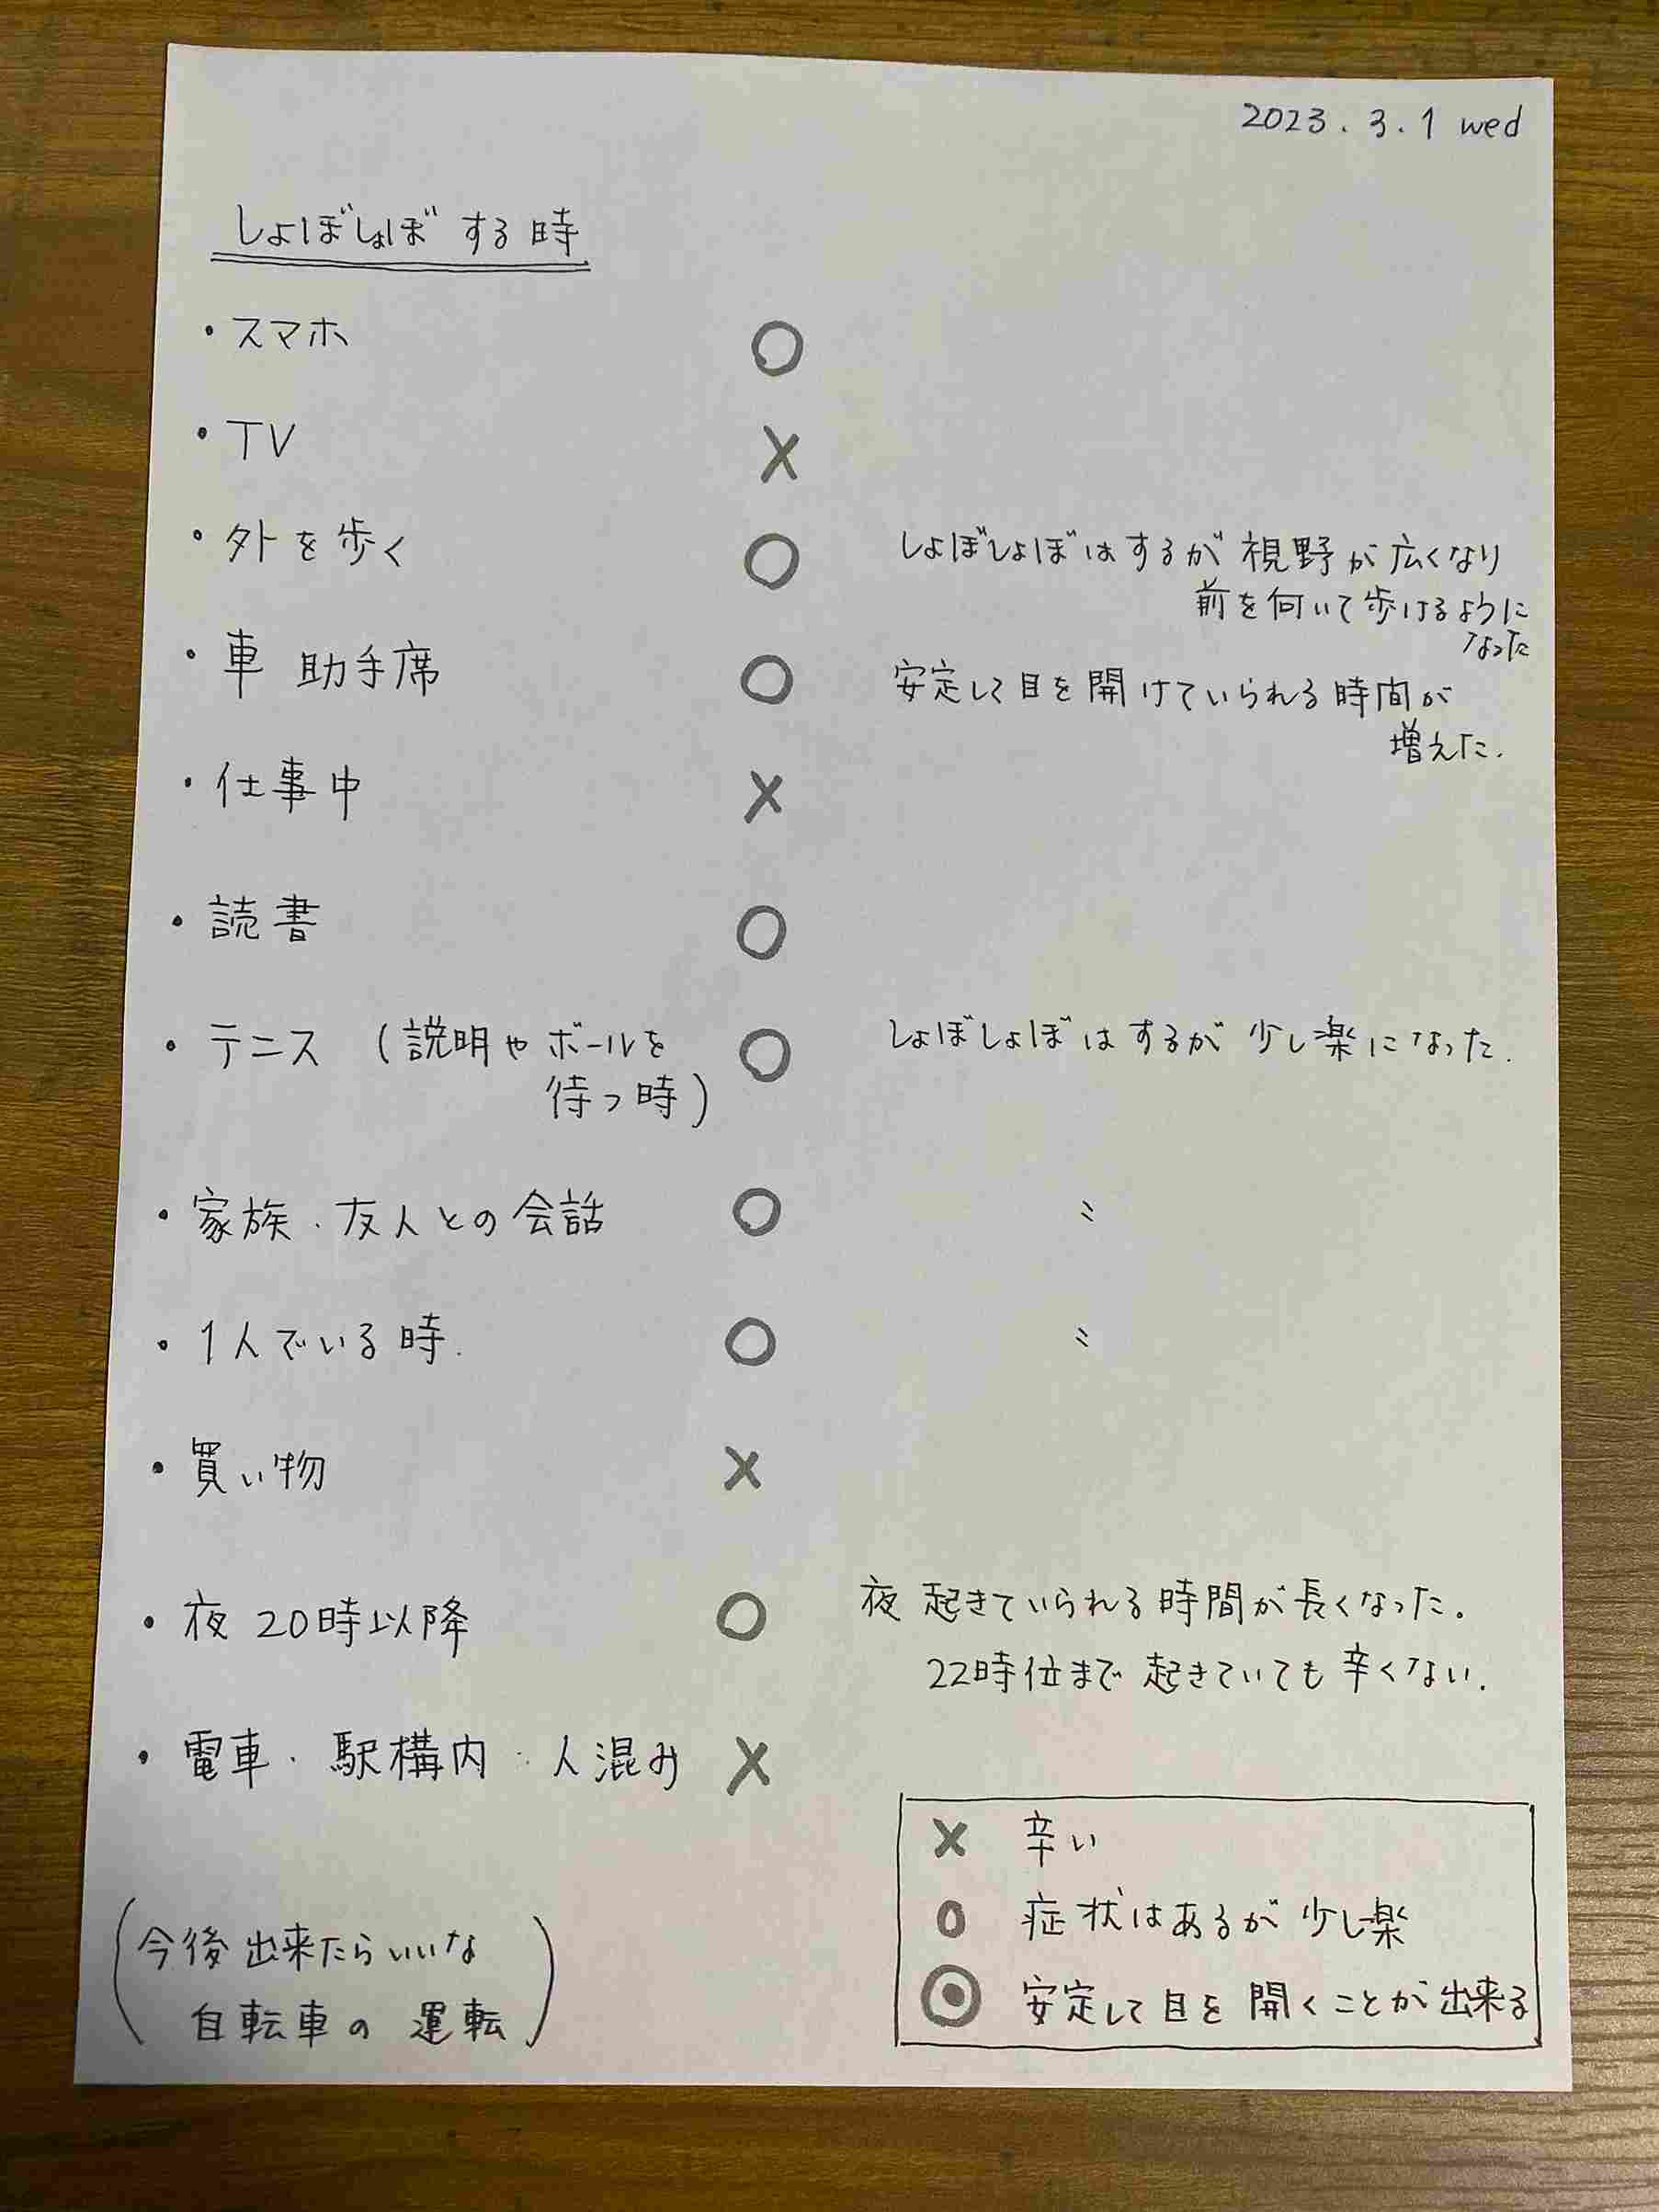 2023.3.1 wed
しょぼしょぼする時
・スマホ ○
・TV ×
・外を歩く ○ しょぼしょぼはするが視野が広くなり
前を向いて歩けるように
なった
・車 助手席 ○ 安定して目を開けていられる時間が
増えた.
・仕事中 ×
・読書 ○
・テニス (説明やボールを ○ しょぼしょぼはするが少し楽になった.
待つ時)
・家族・友人との会話 ○ 〃
・1人でいる時. ○ 〃
・買い物 ×
・夜20時以降 ○ 夜起きていられる時間が長くなった。
22時位まで起きていても辛くない.
・電車・駅構内・人混み ×
× 辛い
○ 症状はあるが少し楽
◎ 安定して目を開くことが出来る
(今後出来たらいいな
自転車の運転)